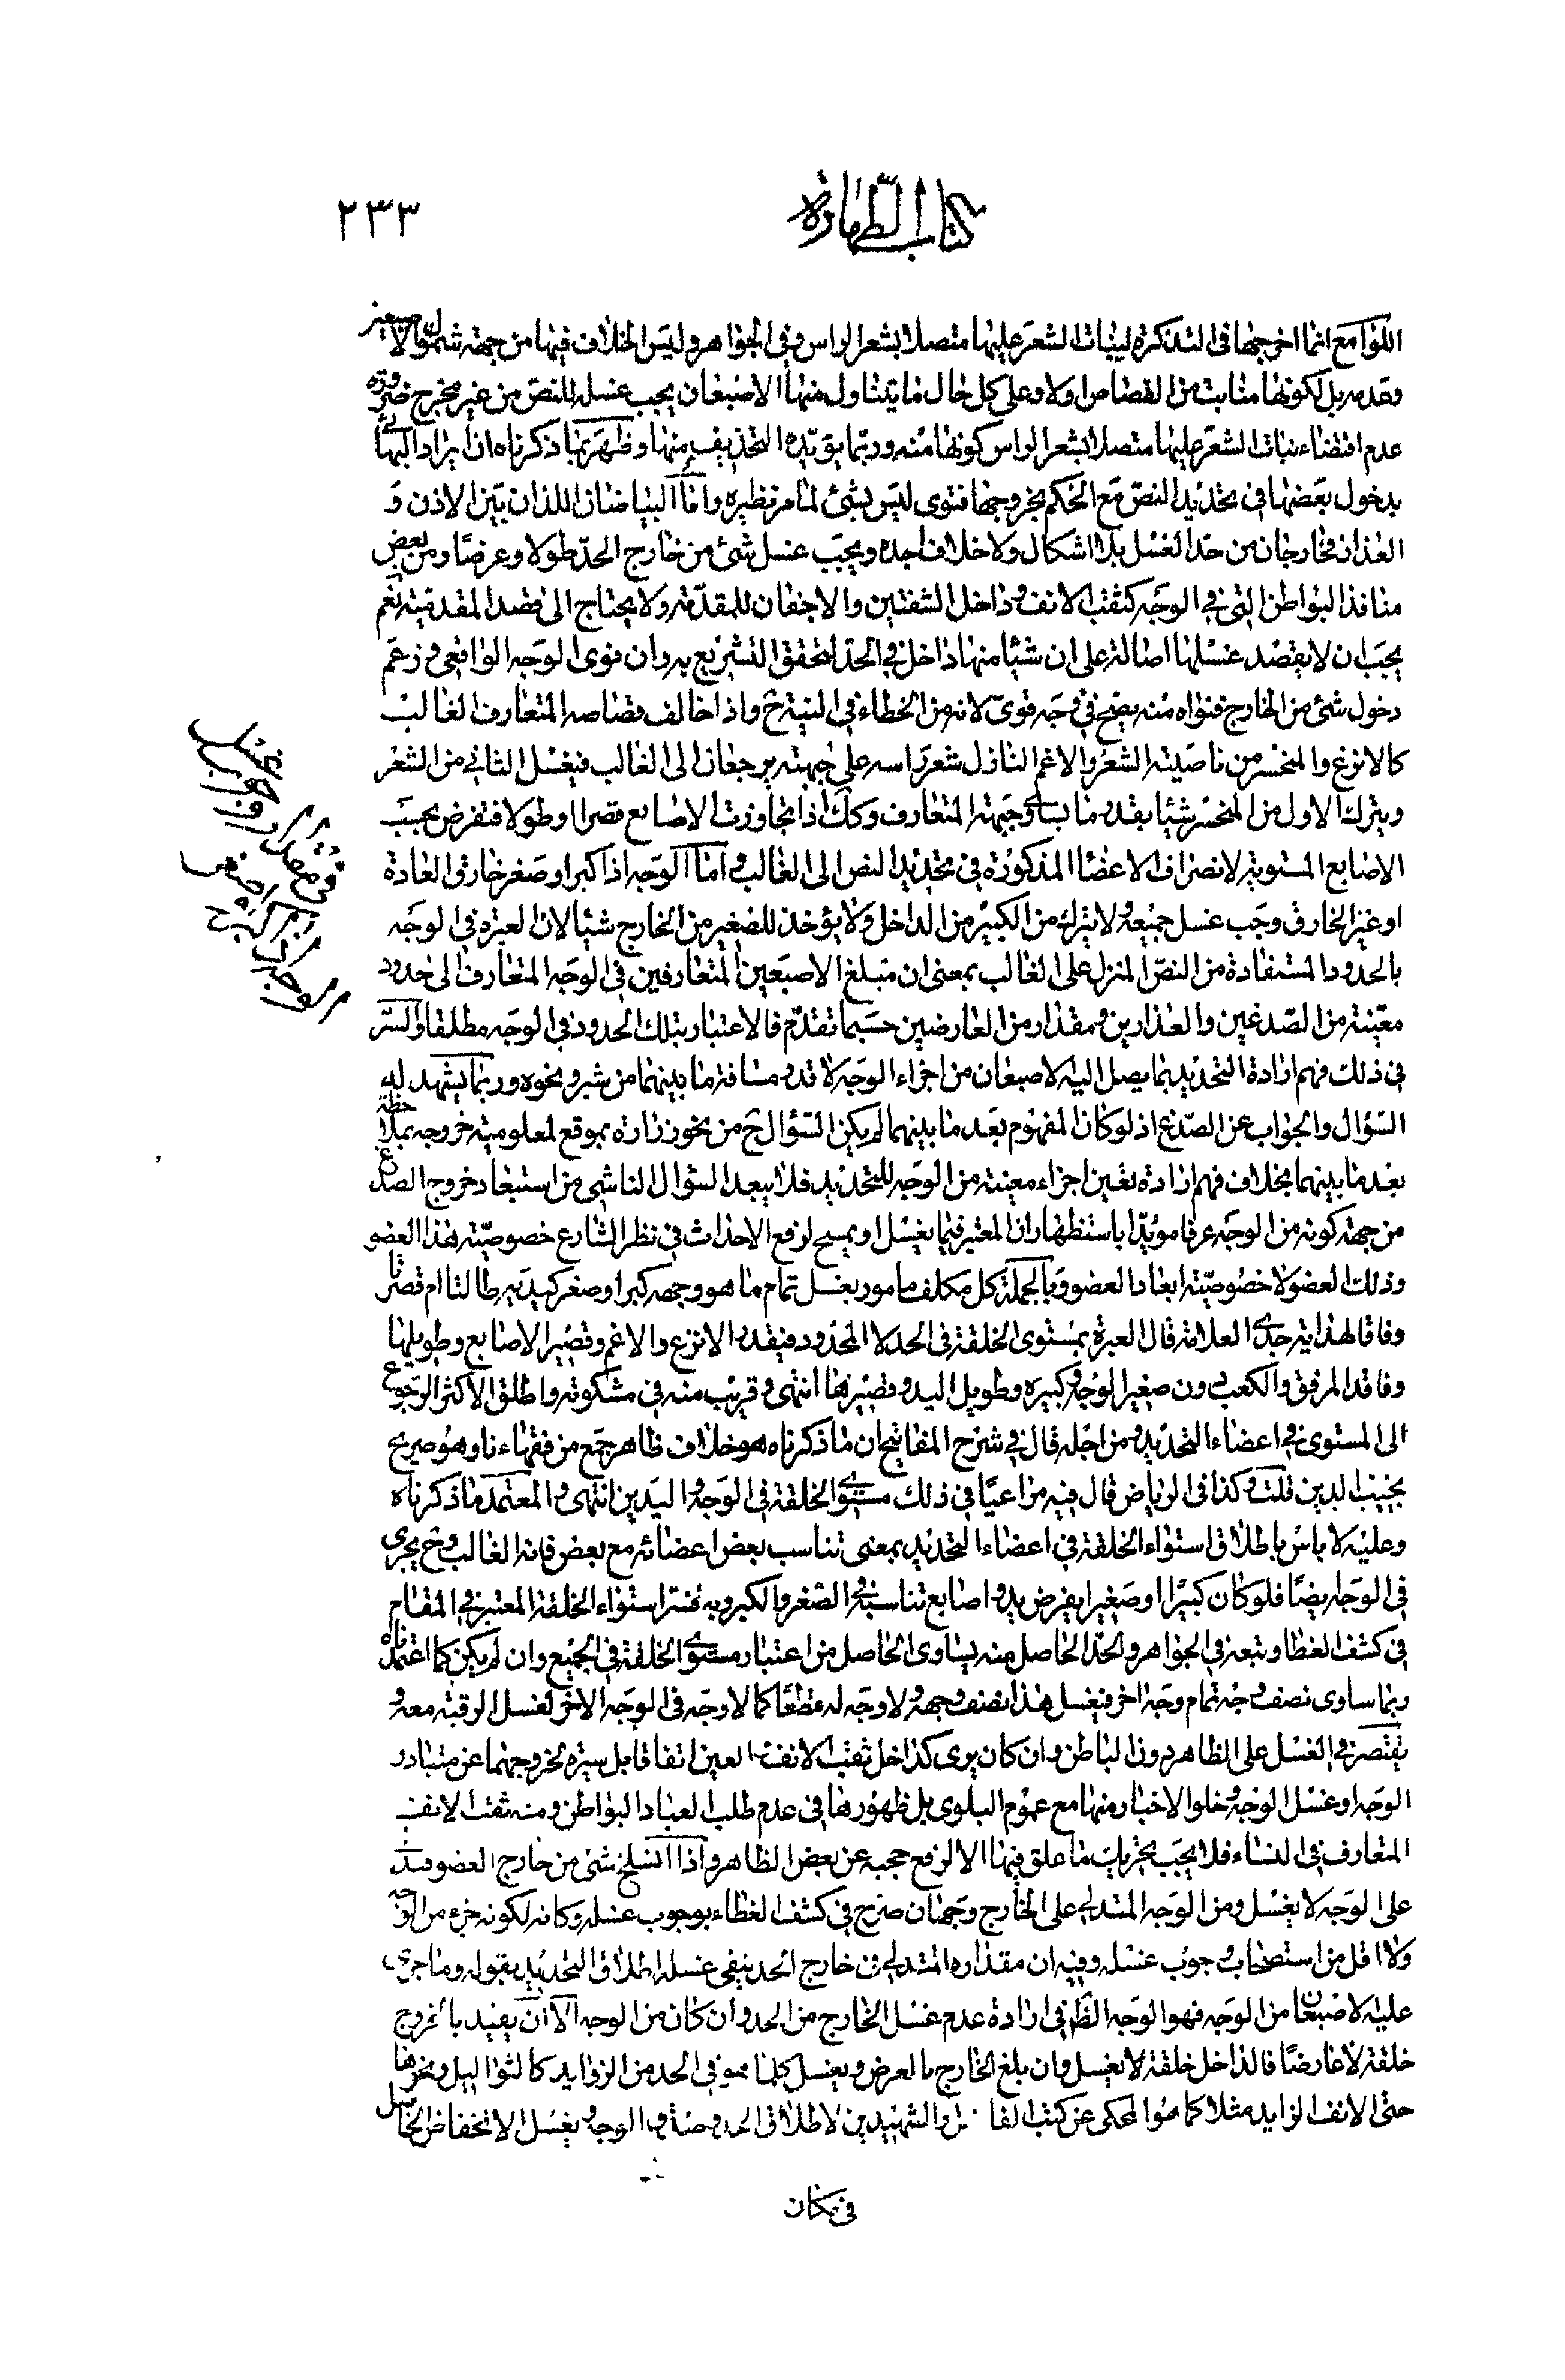 كتاب الطهارة
٢٣٣
اللوامع انما اخرجها فى التذكرة لنبات الشعر عليها متصلا بشعر الراس وفى الجواهر وليس الخلاف فيها من جهة شمول الاصبعين
وعدمه بل لكونها منابت من القصاص اولا وعلى كل حال ما يتناول منها الاصبعان يجب غسله للنص من غير مخرج ضرورة
عدم اقتضاء نبات الشعر عليها متصلا بشعر الراس كونها منه وربما يؤيده التحذيف منها وظهر بما ذكرناه ان ايراد البهائى
بدخول بعضها فى تحديد النص مع الحكم بخروجها فتوى ليس بشئ لما مر نظيره واما البياضان اللذان بين الاذن و
العذار فخارجان من حد الغسل بلا اشكال ولا خلاف اجده ويجب غسل شئ من خارج الحد طولا وعرضا ومن بعض
منافذ البواطن التى فى الوجه كثقب الانف وداخل الشفتين والاجفان للمقدمة ولا يحتاج الى قصد المقدمية نعم
يجب ان لا يقصد غسلها اصالة على ان شيئا منها داخل فى الحد لتحقق التشريع به وان نوى الوجه الواقعى وزعم
دخول شئ من الخارج فنواه منه يصح فى وجه قوى لانه من الخطاء فى النية ح واذا خالف قصاصه المتعارف الغالب
كالانزع والمنحسر من ناصيته الشعر والاغم النازل شعر راسه على جبهته يرجعان الى الغالب فيغسل الثانى من الشعر
ويترك الاول من المنحسر شيئا بقدر ما يساوى جبهته المتعارف وكك اذا تجاوزت الاصابع قصرا او طولا فتفرض بحسب
الاصابع المستوية لانصراف الاعضا المذكورة فى تحديد النص الى الغالب واما الوجه اذا كبر او صغر خارق العادة
او غير الخارق وجب غسل جميعه ولا يترك من الكبير من الداخل ولا يؤخذ للصغير من الخارج شيئا لان العبرة فى الوجه
بالحدود المستفادة من النص المنزل على الغالب بمعنى ان مبلغ الاصبعين المتعارفين فى الوجه المتعارف الى حدود
معينة من الصدغين والعذارين ومقدار من العارضين حسبما تقدم فالاعتبار بتلك الحدود فى الوجه مطلقا والسر
فى ذلك فهم ارادة التحديد بما يصل اليه الاصبعان من اجزاء الوجه لا قدر مسافة ما بينهما من شبر ونحوه وربما يشهد له
السؤال والجواب عن الصدغ اذ لو كان المفهوم بعد ما بينهما لم يكن السؤال ح من نحو زرارة بموقع لمعلومية خروجه بملاحظة
بعد ما بينهما بخلاف فهم ارادة تعين اجزاء معينة من الوجه للتحديد فلا يبعد السؤال الناشى من استبعاد خروج الصدغ
من جهة كونه من الوجه عرفا مؤيدا باستظهار ان المعتبر فيما يغسل او يمسح لرفع الاحداث فى نظر الشارع خصوصية هذا العضو
وذلك العضو لا خصوصية ابعاد العضو وبالجملة كل مكلف مامور بغسل تمام ما هو وجهه كبر او صغر كيديه طالتا ام قصرتا
وفاقا لهداية جدى العلامة قال العبرة بمستوى الخلقة فى الحد لا المحدود فيقدر الانزع والاغم وقصير الاصابع وطويلها
وفاقد المرفق والكعب دون صغير الوجه وكبيره وطويل اليد وقصيرها انتهى وقريب منه فى مشكوته واطلق الاكثر الرجوع
الى المستوى فى اعضاء التحديد ومن اجله قال فى شرح المفاتيح ان ما ذكرناه هو خلاف ظاهر جمع من فقهاءنا وهو صريح
نجيب الدين قلت وكذا فى الرياض قال فيه مراعيا فى ذلك مستوى الخلقة فى الوجه واليدين انتهى والمعتمد ما ذكرناه
وعليه لا باس باطلاق استواء الخلقة فى اعضاء التحديد بمعنى تناسب بعض اعضائه مع بعض فانه الغالب وح يجرى
فى الوجه ايضا فلو كان كبيرا او صغيرا يفرض يد واصابع تناسبه فى الصغر والكبر وبه فسر استواء الخلقة المعتبر فى المقام
فى كشف الغطا وتبعه فى الجواهر والحد الحاصل منه يساوى الحاصل من اعتبار مستوى الخلقة فى الجميع وان لم يكن كما اعتمدناه
ربما ساوى نصف وجه تمام وجه اخر فيغسل هذا نصف وجهه ولا وجه له قطعا كما لا وجه فى الوجه الاخر لغسل الرقبة معه و
يقتصر فى الغسل على الظاهر دون الباطن وان كان يرى كداخل ثقب الانف والعين اتفاقا بل سيرة لخروجهما عن متبادر
الوجه او غسل الوجه وخلوا الاخبار منها مع عموم البلوى بل ظهورها فى عدم طلب العباد البواطن ومنه ثقب الانف
المتعارف فى النساء فلا يجب تحريك ما علق فيها الا لرفع حجبه عن بعض الظاهر واذا انسلخ شئ من خارج العضو فتدلى
على الوجه لا يغسل ومن الوجه المتدلى على الخارج وجهان صرح فى كشف الغطاء بوجوب غسله وكانه لكونه جزء من الوجه
ولا اقل من استصحاب وجوب غسله وفيه ان مقداره المتدلى من خارج الحد ينفى غسله اطلاق التحديد بقوله وما جرى
عليه الاصبعان من الوجه فهو الوجه الظ فى ارادة عدم غسل الخارج من الحد وان كان من الوجه الا ان يقيد بالخروج
خلقة لا عارضا فالداخل خلقة لا يغسل وان بلغ الخارج بالعرض ويغسل كلما هو فى الحد من الزوايد كالثواليل ونحوها
حتى الانف الزايد مثلا كما هو المحكى عن كتب الفاضل والشهيدين لاطلاق الحد وصدق الوجه ويغسل الانخفاض الحاصل
فى مكان